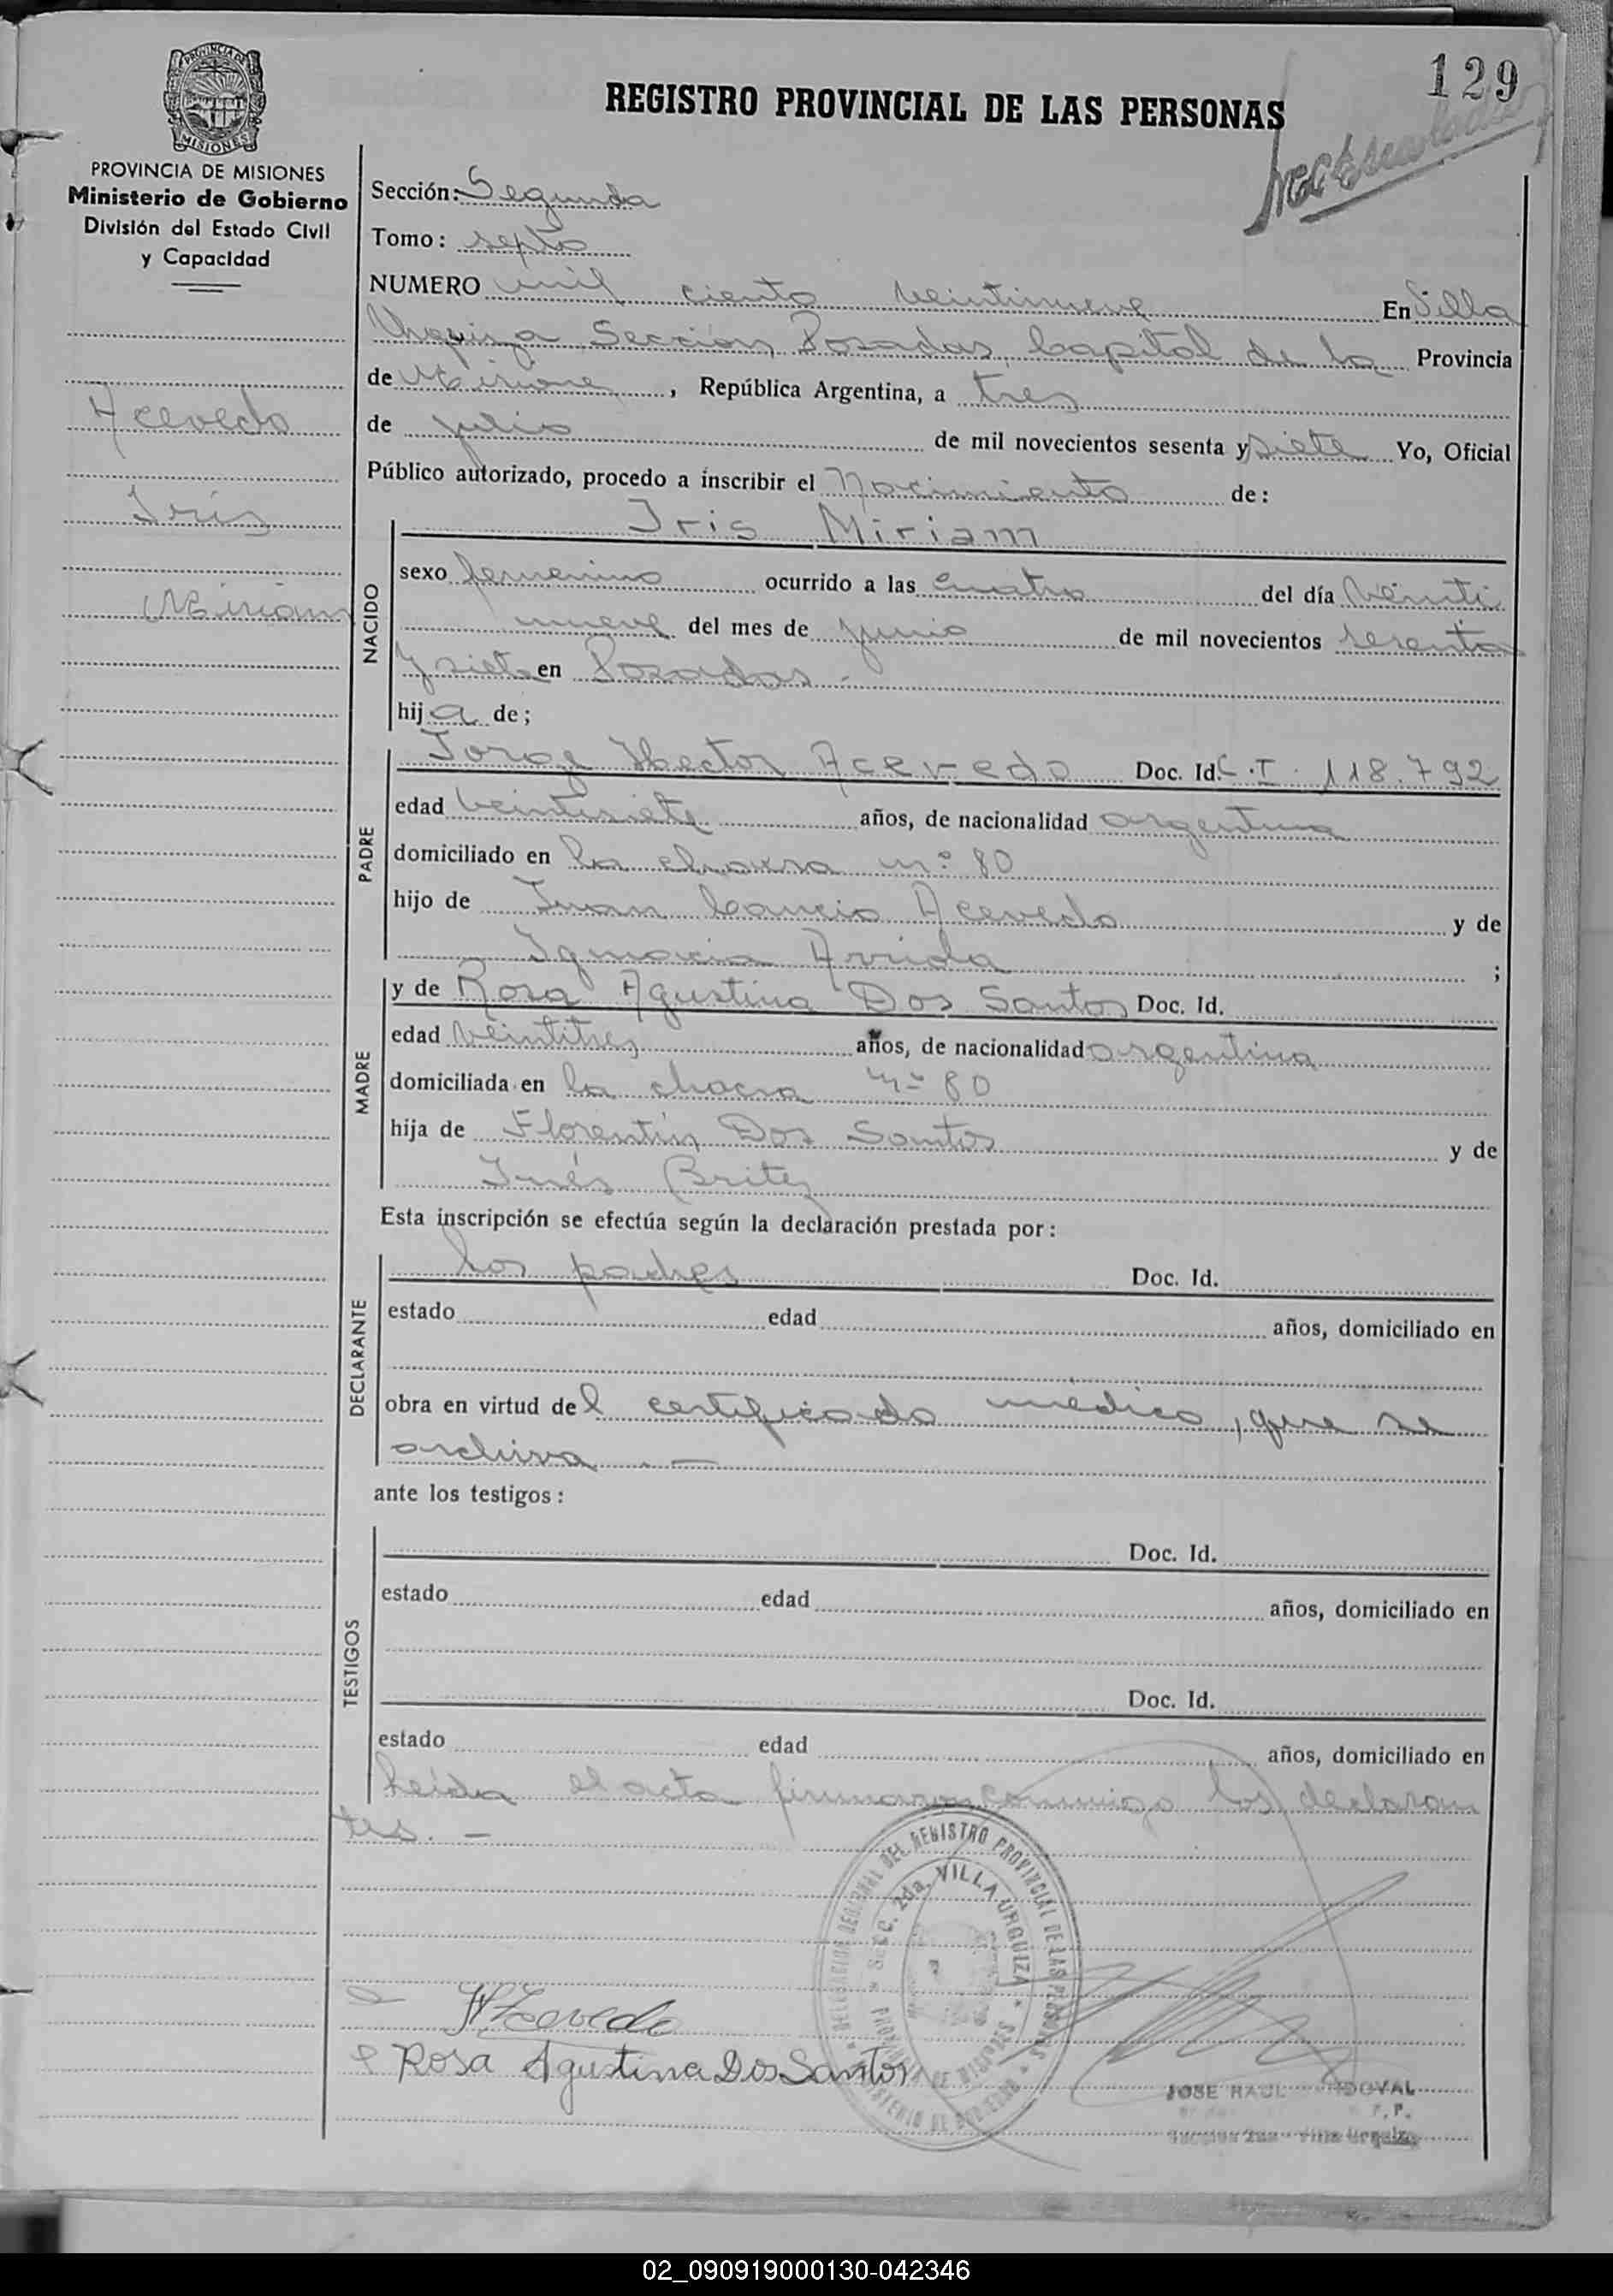 129
REGISTRO PROVINCIAL DE LAS PERSONAS
PROVINCIA DE MISIONES
Ministerio de Gobierno
División del Estado Civil
y Capacidad
Acevedo
Iris
Miriam
Sección: Segunda
Tomo: septo
NUMERO mil ciento veintinueve En Villa
Urquiza Sección Posadas Capital de la Provincia
de Misiones, República Argentina, a tres
de julio de mil novecientos sesenta y siete Yo, Oficial
Público autorizado, procedo a inscribir el Nacimiento de:
Iris Miriam
NACIDO
sexo femenino ocurrido a las cuatro del día veinti
nueve del mes de junio de mil novecientos sesenta
y siete en Posadas -
hija de;
PADRE
Jorge Hector Acevedo Doc. Id. C.I. 118.792
edad veintisiete años, de nacionalidad argentina
domiciliado en la chacra n° 80
hijo de Juan Cancio Acevedo y de
Ignacia Arriola ;
MADRE
y de Rosa Agustina Dos Santos Doc. Id.
edad veintitres años, de nacionalidad argentina
domiciliada en la chacra n° 80
hija de Florentín Dos Santos y de
Inés Britez
Esta inscripción se efectúa según la declaración prestada por:
DECLARANTE
los padres Doc. Id.
estado edad años, domiciliado en
obra en virtud del certificado médico, que se
archiva. -
ante los testigos:
TESTIGOS
Doc. Id.
estado edad años, domiciliado en
Doc. Id.
estado edad años, domiciliado en
Leída el acta firmaron conmigo los declaran
tes. -
DELEGACION REGIONAL DEL REGISTRO PROVINCIAL DE LAS PERSONAS
Secc. 2da. VILLA URGUIZA
PROVINCIA DE MISIONES
MINISTERIO DE GOBIERNO
HAcevedo
Rosa Agustina Dos Santos
JOSE RAUL
Seccion 2da - Villa Urquiza
02_090919000130-042346